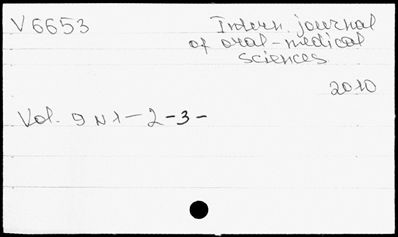 V6653
Intern. journal
of oral-medical
sciences
2010
Vol. 9 N 1-2-3-